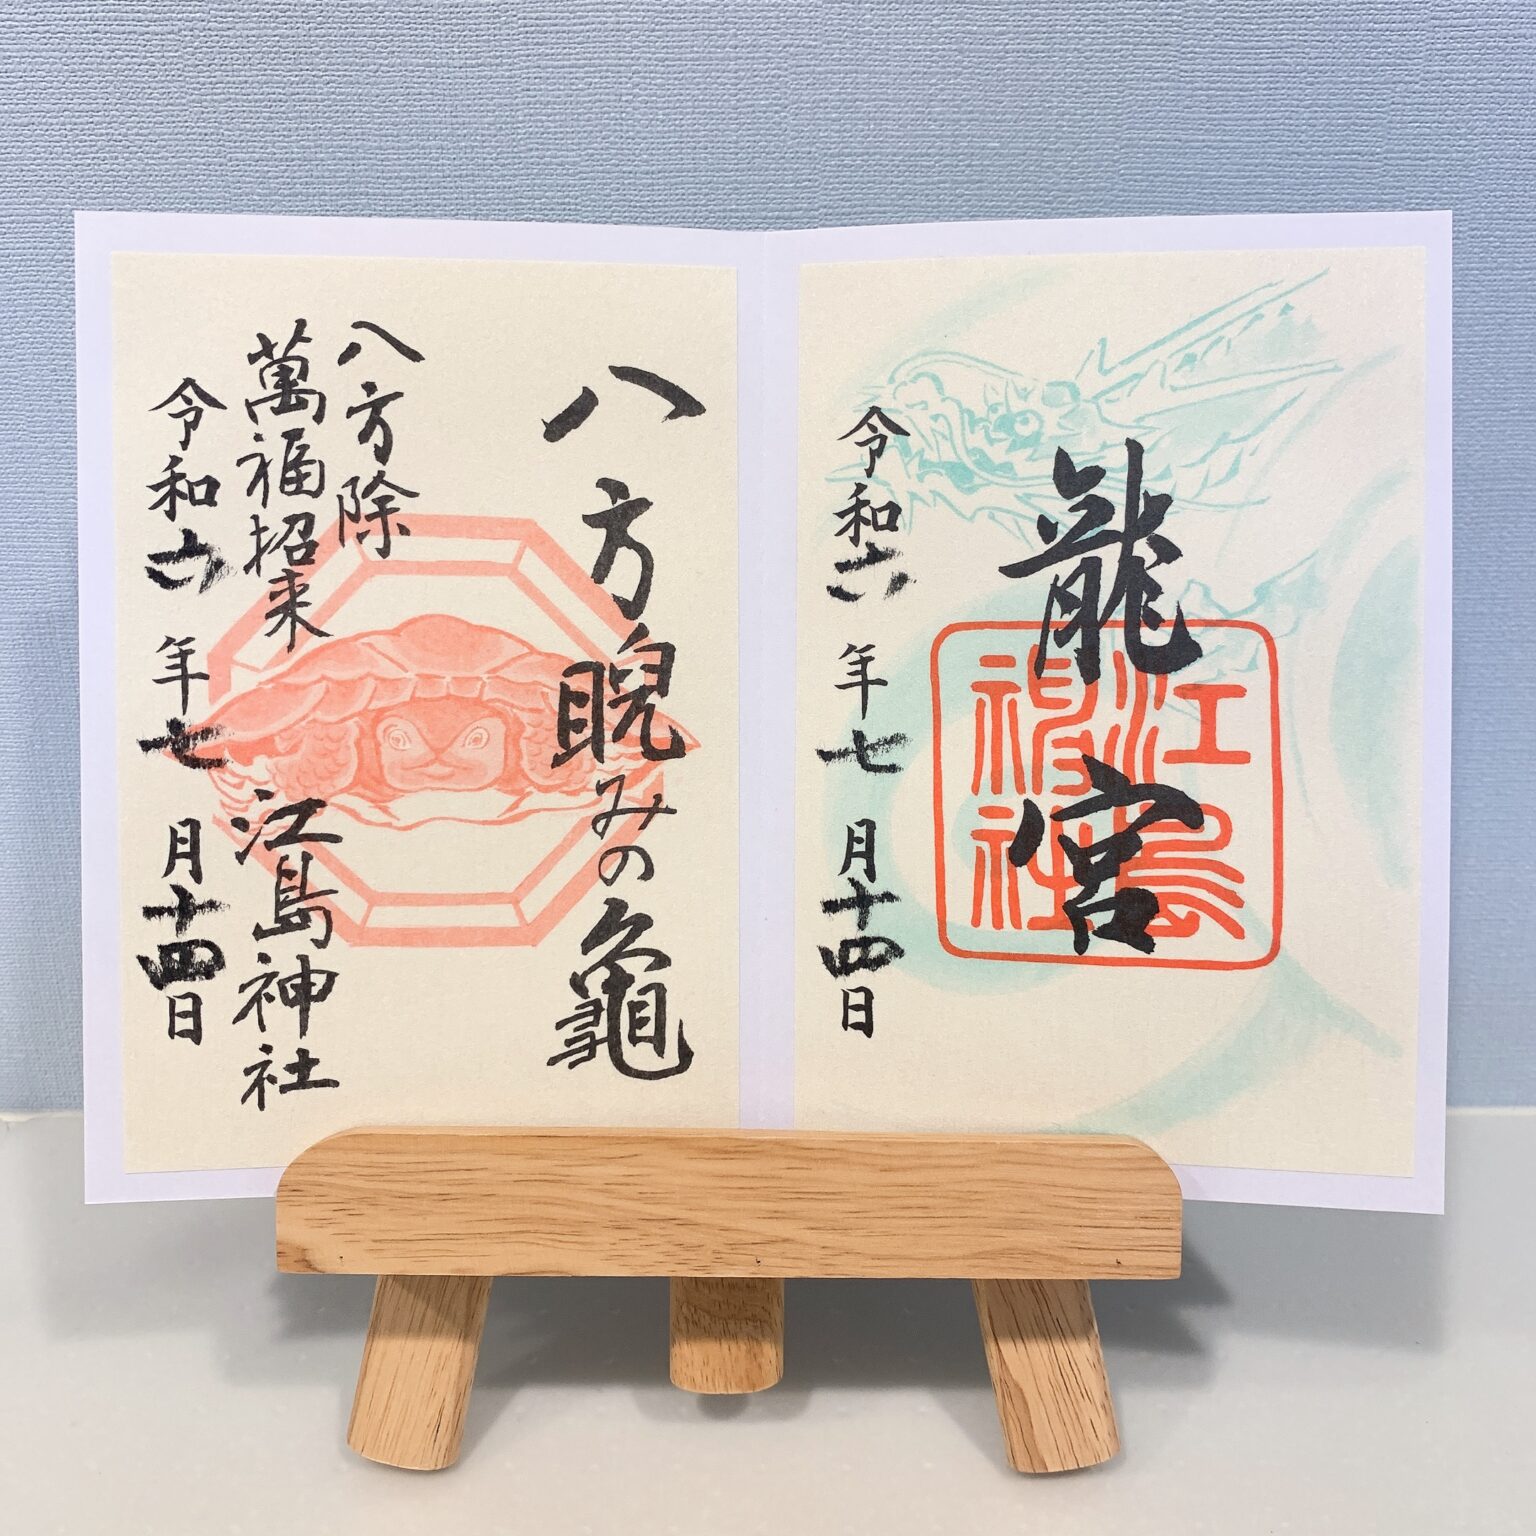 龍宮
江島神社
令和六年七月十四日
八方睨みの龜
八方除
萬福招来
江島神社
令和六年七月十四日